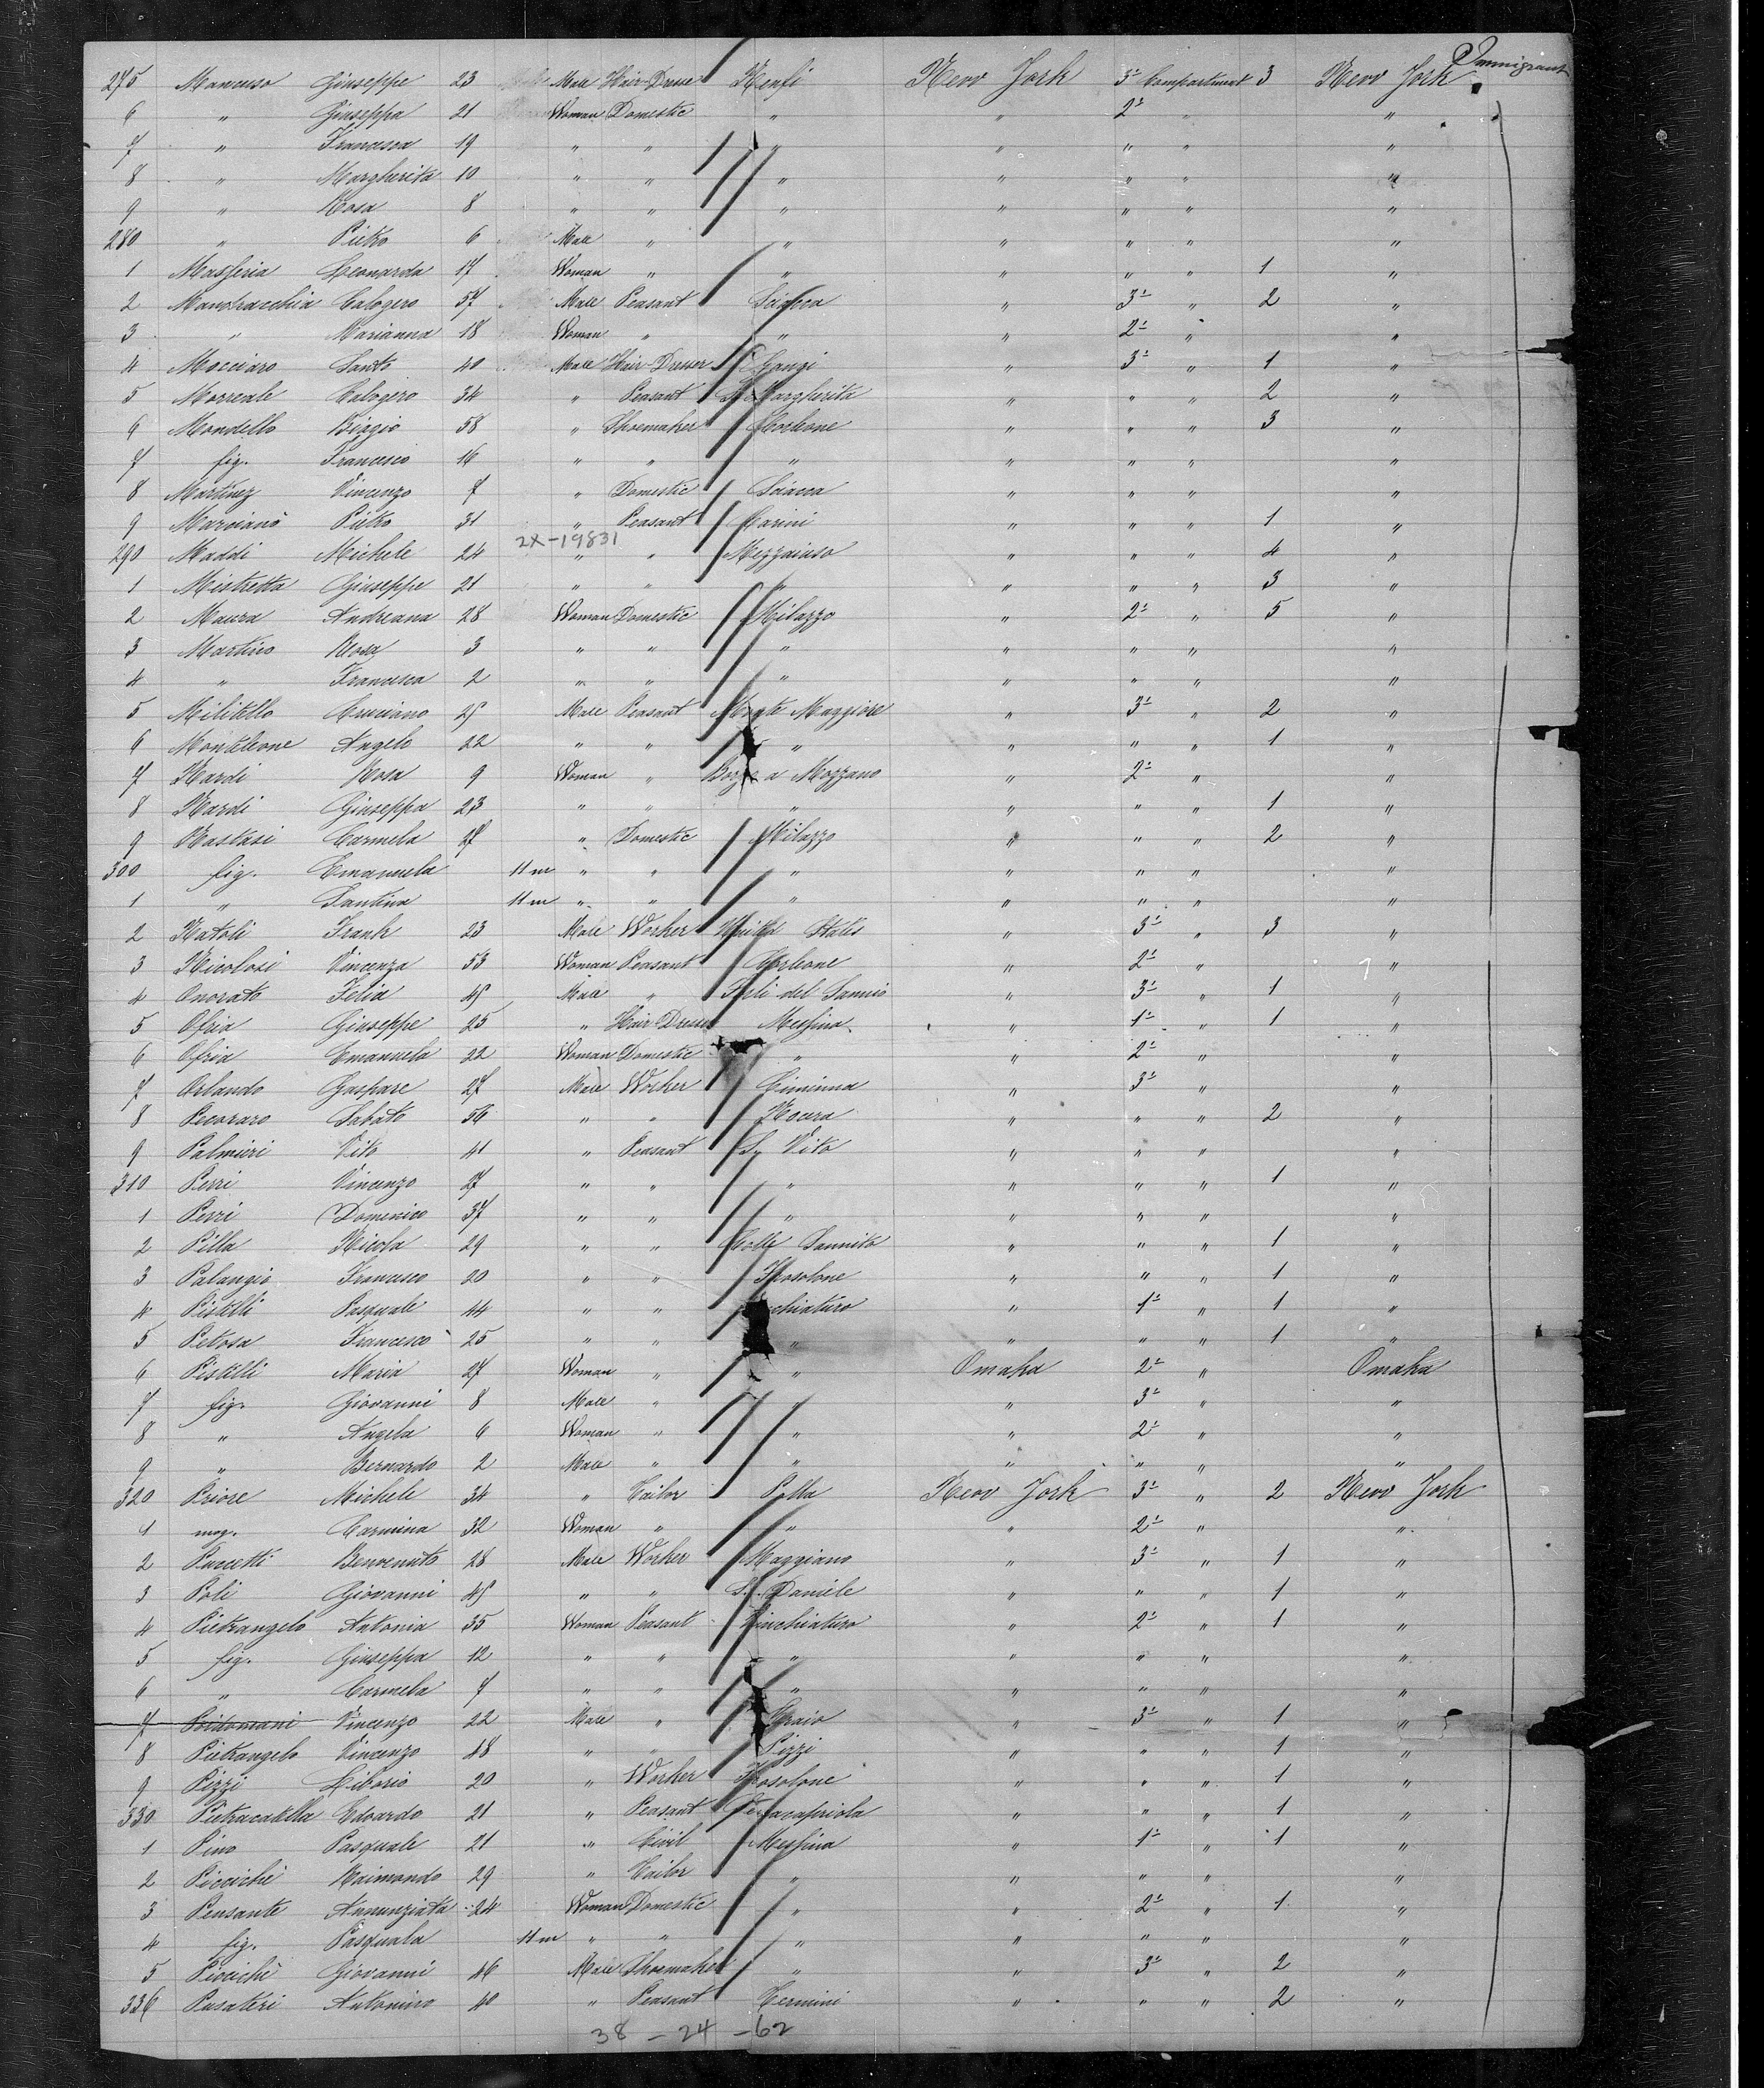 Immigrant
275 Mancuso Giuseppe 23 Male Hair-Dresser Menfi New York 3ª Compartment 3 New York
6 " Giuseppa 21 Woman Domestic " " 2ª " "
7 " Francesca 19 " " " " " " "
8 " Margherita 10 " " " " " " "
9 " Rosa 8 " " " " " " "
280 " Pietro 6 Male " " " " " "
1 Masseria Leonarda 17 Woman " " " " " 1 "
2 Mandracchia Calogero 57 Male Peasant Sciacca " 3ª " 2 "
3 " Marianna 18 Woman " " " 2ª " "
4 Mocciaro Santo 40 Male Hair-Dresser Gangi " 3ª " 1 "
5 Morreale Calogero 34 " Peasant S. Margherita " " " 2 "
6 Mondello Biagio 58 " Shoemaker Corleone " " " 3 "
7 fig. Francesco 16 " " " " " " "
8 Martinez Vincenzo 7 " Domestic Sciacca " " " "
9 Marcianò Pietro 31 " Peasant Carini " " " 1 "
2X-19831
290 Maddi Michele 24 " " Mezzojuso " " " 4 "
1 Mistretta Giuseppe 21 " " " " " " 3 "
2 Maura Andreana 28 Woman Domestic Milazzo " 2ª " 5 "
3 Martino Rosa 3 " " " " " " "
4 " Francesca 2 " " " " " " "
5 Militello Cruciano 25 Male Peasant Monte Maggiore " 3ª " 2 "
6 Monteleone Angelo 22 " " " " " " 1 "
7 Nardi Rosa 9 Woman " Borgo a Mozzano " 2ª " "
8 Nardi Giuseppa 23 " " " " " " 1 "
9 Nastasi Carmela 27 " Domestic Milazzo " " " 2 "
300 fig. Emanuela 11 m " " " " " " "
1 " Santina 11 m " " " " " "
2 Natoli Frank 23 Male Worker United States " 3ª " 3 "
3 Nicolosi Vincenza 53 Woman Peasant Corleone " 2ª " "
4 Onorato Felia 45 Male " Forli del Sannio " 3ª " 1 "
5 Ofria Giuseppe 25 " Hair-Dresser Messina " 1ª " 1 "
6 Ofria Emanuela 22 Woman Domestic " " 2ª " "
7 Orlando Gaspare 27 Male Worker Ciminna " 3ª " "
8 Pecoraro Sabato 56 " " Nocera " " " 2 "
9 Palmieri Vito 41 " Peasant S. Vito " " " "
310 Perri Vincenzo 27 " " " " " " 1 "
1 Perri Domenico 37 " " " " " " "
2 Pilla Nicola 29 " " Colle Sannita " " " 1 "
3 Palangio Francesco 20 " " Frosolone " " " 1 "
4 Pistilli Pasquale 44 " " chiaturo " 1ª " 1 "
5 Petosa Francesco 25 " " " " " " 1 "
6 Pistilli Maria 27 Woman " " Omaha 2ª " Omaha
7 fig. Giovanni 8 Male " " " 3ª " "
8 " Angela 6 Woman " " " 2ª " "
9 " Bernardo 2 Male " " " " " "
320 Priore Michele 34 " Tailor Polla New York 3ª " 2 New York
1 mog. Carmina 32 Woman " " " 2ª " "
2 Puccetti Benvenuto 28 Male Worker Maggiano " 3ª " 1 "
3 Poli Giovanni 45 " " S. Daniele " " " 1 "
4 Pietrangelo Antonia 35 Woman Peasant Vinchiaturo " 2ª " 1 "
5 fig. Giuseppa 12 " " " " " " "
6 " Carmela 7 " " " " " " "
7 Poidomani Vincenzo 22 Male " " 3ª " 1 "
8 Pietrangelo Vincenzo 48 " " Pizzi " " " 1 "
9 Pizzi Liborio 20 " Worker Frosolone " " " 1 "
330 Pietracatella Edoardo 21 " Peasant Serracapriola " " " 1 "
1 Pino Pasquale 21 " Civil Messina " 1ª " 1 "
2 Piccichè Raimondo 29 " Tailor " " " " "
3 Pensante Annunziata 24 Woman Domestic " " 2ª " 1 "
4 fig. Pasquala 11 m " " " " " " "
5 Piccichè Giovanni 46 Male Shoemaker " " 3ª " 2 "
336 Pusateri Antonino 40 " Peasant Termini " " " 2 "
38 - 24 - 62